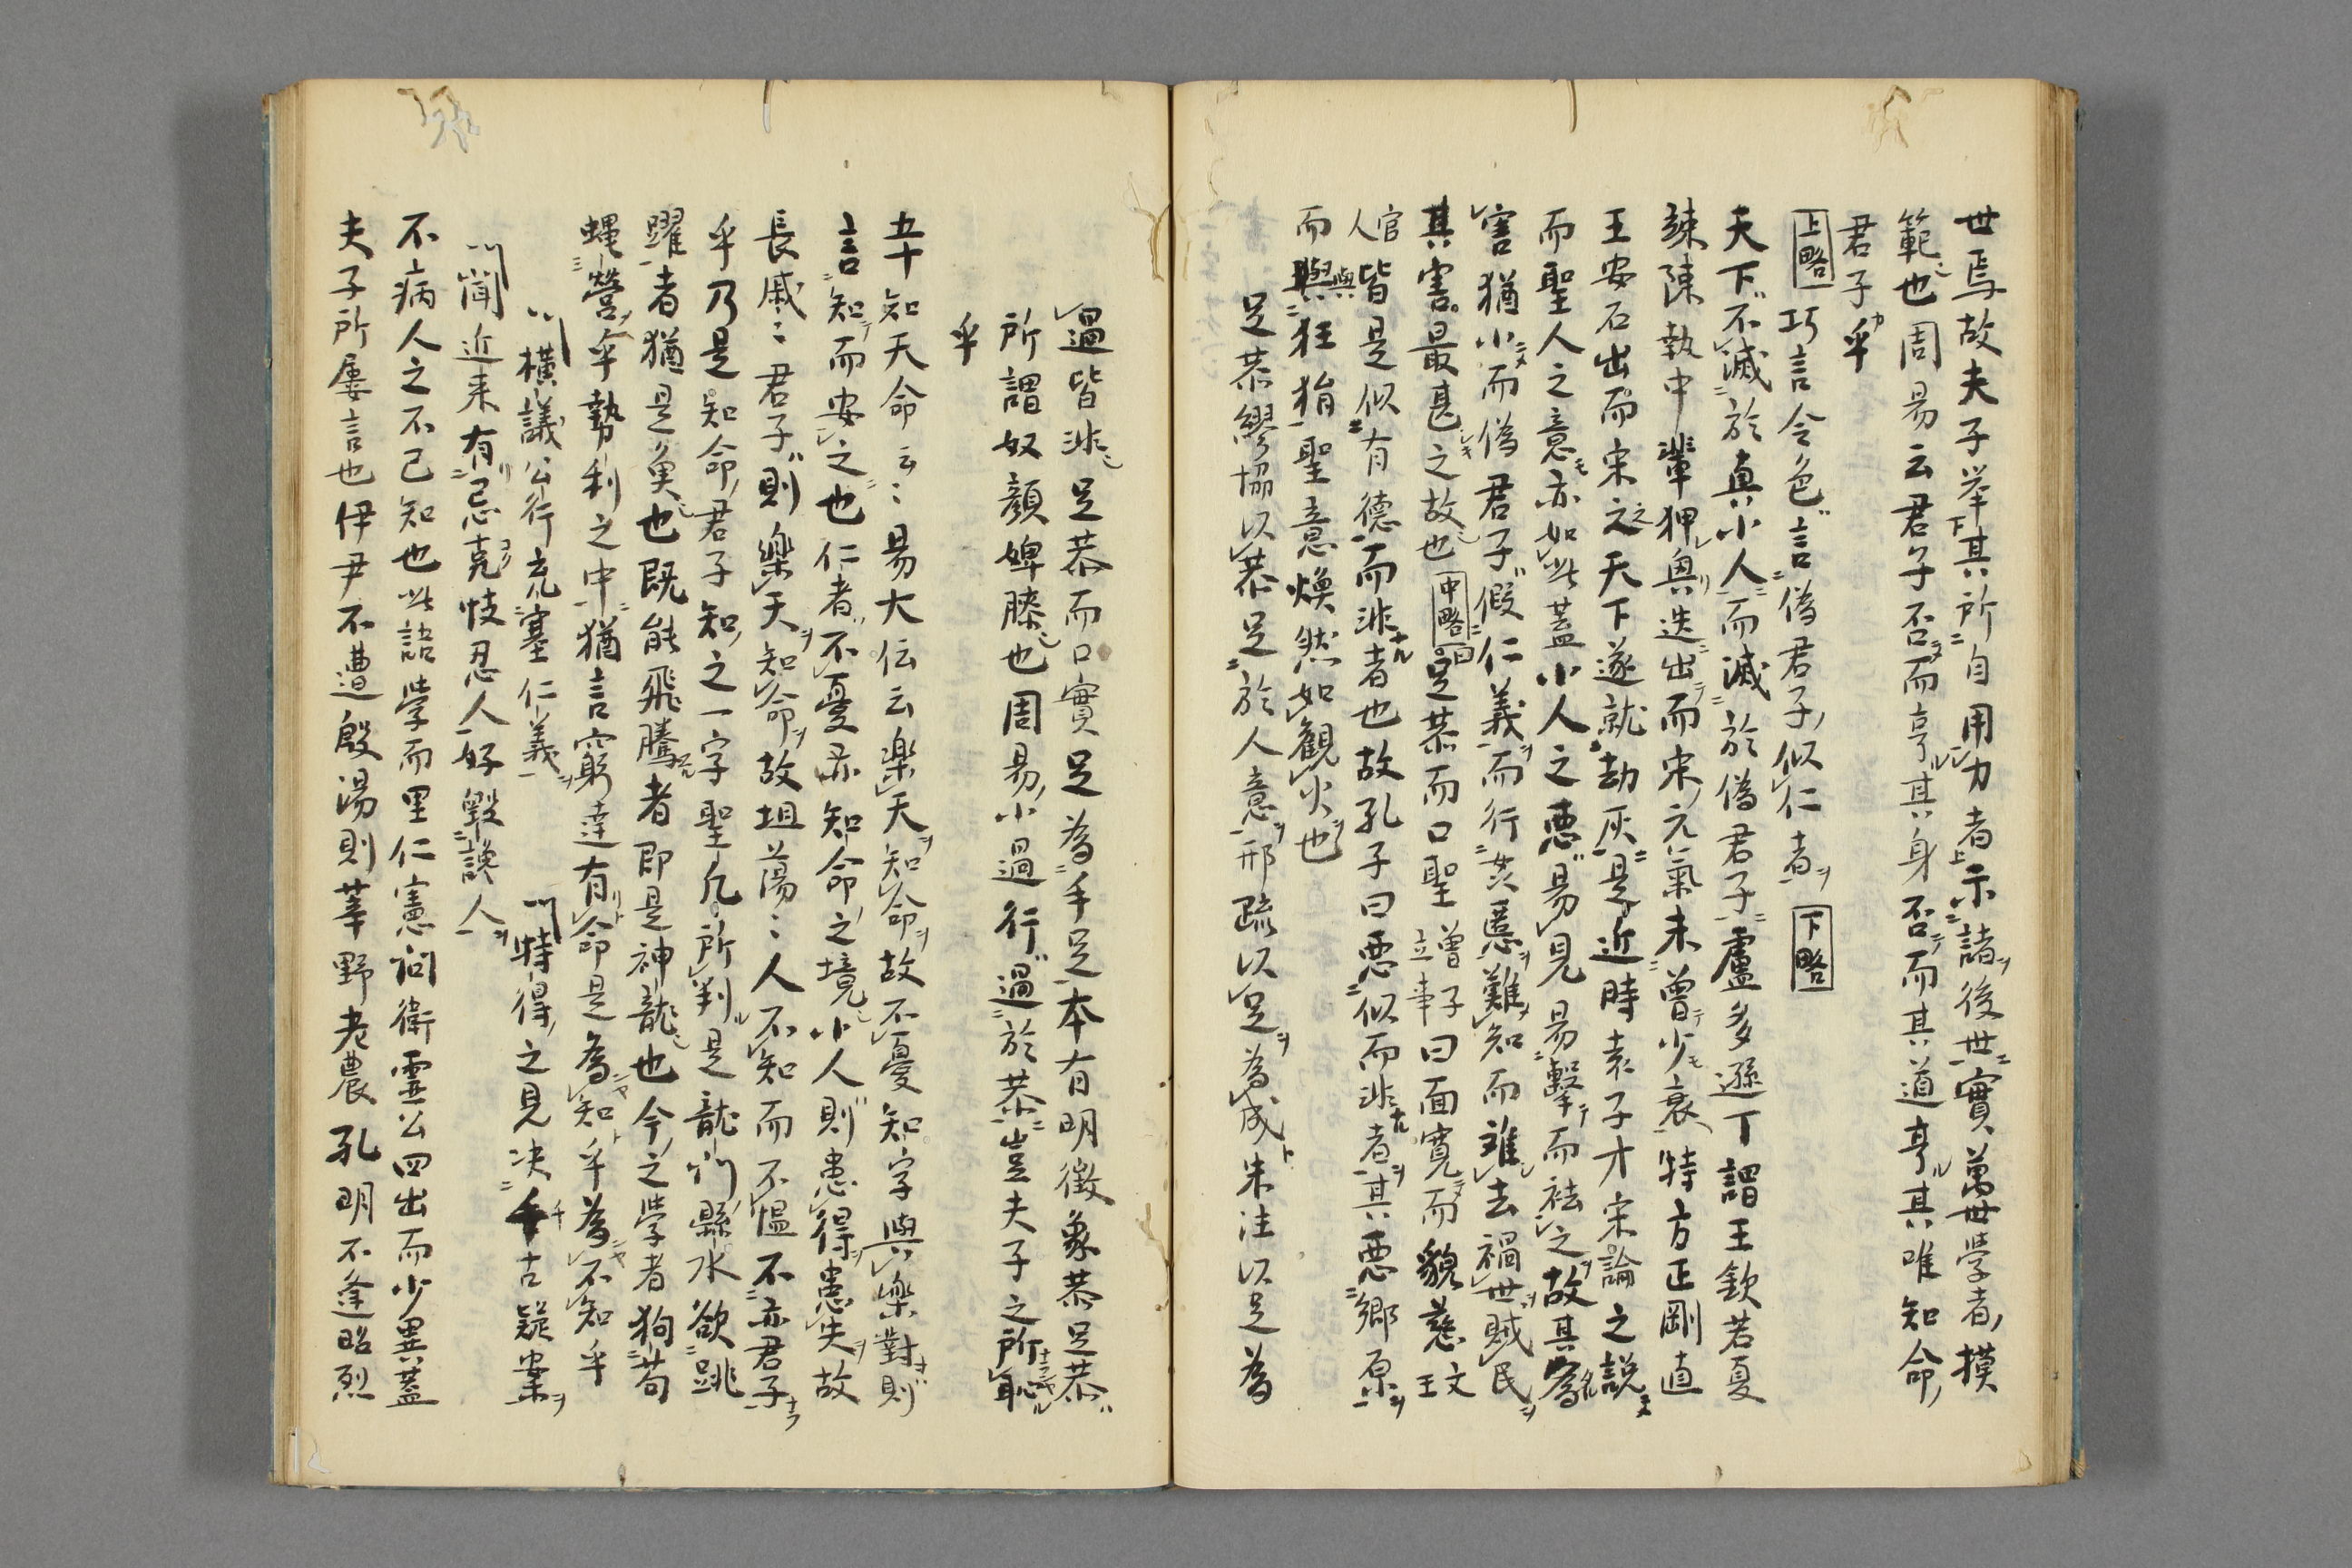 世焉故夫子举其所自用力者示諸後世實萬世學者摸
範也周易云君子否而亨其身否而其道亨其唯知命
君子乎
上略 巧言令色言偽君子似仁者 下略
天下不滅於真小人而滅於偽君子盧多遜丁謂王欽若夏
竦陳執中輩狎興迭出而宋元氣未曽少衰特方正剛直
王安石出而宋之天下遂就劫灰是近時袁子才宋論之説
而聖人之意亦如此蓋小人之悪易見易擊而祛之故其為
害猶小而偽君子假仁義而行其慝難知而難去禍世賊民
其害最甚之故也 中略 曰足恭而口聖曽子立事曰面寛而貌慈文王
官人皆是似有德而非者也故孔子曰悪似而非者其悪鄉原
而與狂狷聖意煥然如観火也
足恭繆協以恭足於人意邢疏以足為成朱注以足為
過皆非足恭而口實足為手足本有明徴象恭足恭
所謂奴顔婢膝也周易小過行過於恭豈夫子之所恥
乎
五十知天命云〻易大伝云楽天知命故不憂知字與楽對則
言知而安之也仁者不憂亦知命之境小人則患得患失故
長戚〻君子則樂天知命故坦蕩〻人不知而不慍不亦君子
乎乃是知命君子知之一字聖凡所判是龍門縣水欲跳
躍者猶是魚也既能飛騰者即是神龍也今之學者狗苟
蝿營乎勢利之中猶言窮達有命是為知乎為不知乎
〻横議公行充塞仁義 〻特得之見决千古疑案
〻聞近来有忌克忮忍人好毀讒人
不病人之不己知也此語學而里仁憲问衛霊公四出而少異蓋
夫子所屢言也伊尹不遭殷湯則莘野老農孔明不逢昭烈